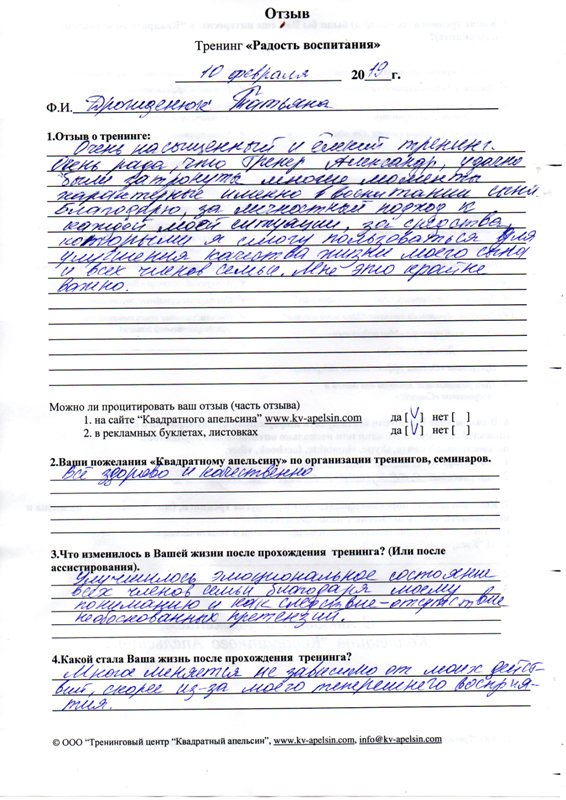 Отзыв
Тренинг «Радость воспитания»
10 февраля 2019 г.
Ф.И. Дрожденюк Татьяна
1.Отзыв о тренинге:
Очень насыщенный и ёмкий тренинг.
Очень рада, что Тренер Александр, удачно
были затронуты многие моменты
характерные именно в воспитании сына.
Благодарю, за личностный подход к
каждой моей ситуации, за средства,
которыми я смогу пользоваться для
улучшения качества жизни моего сына
и всех членов семьи. Мне это крайне
важно.
Можно ли процитировать ваш отзыв (часть отзыва)
1. на сайте “Квадратного апельсина” www.kv-apelsin.com да [V] нет [ ]
2. в рекламных буклетах, листовках да [V] нет [ ]
2.Ваши пожелания «Квадратному апельсину» по организации тренингов, семинаров.
Всё здорово и качественно
3.Что изменилось в Вашей жизни после прохождения тренинга? (Или после
ассистирования).
Улучшилось эмоциональное состояние
всех членов семьи благодаря моему
пониманию и как следствие-отсутствие
необоснованных претензий.
4.Какой стала Ваша жизнь после прохождения тренинга?
Многое меняется не зависимо от моих дейст-
вий, скорее из-за моего теперешнего восприя-
тия.
© ООО “Тренинговый центр “Квадратный апельсин”, www.kv-apelsin.com, info@kv-apelsin.com